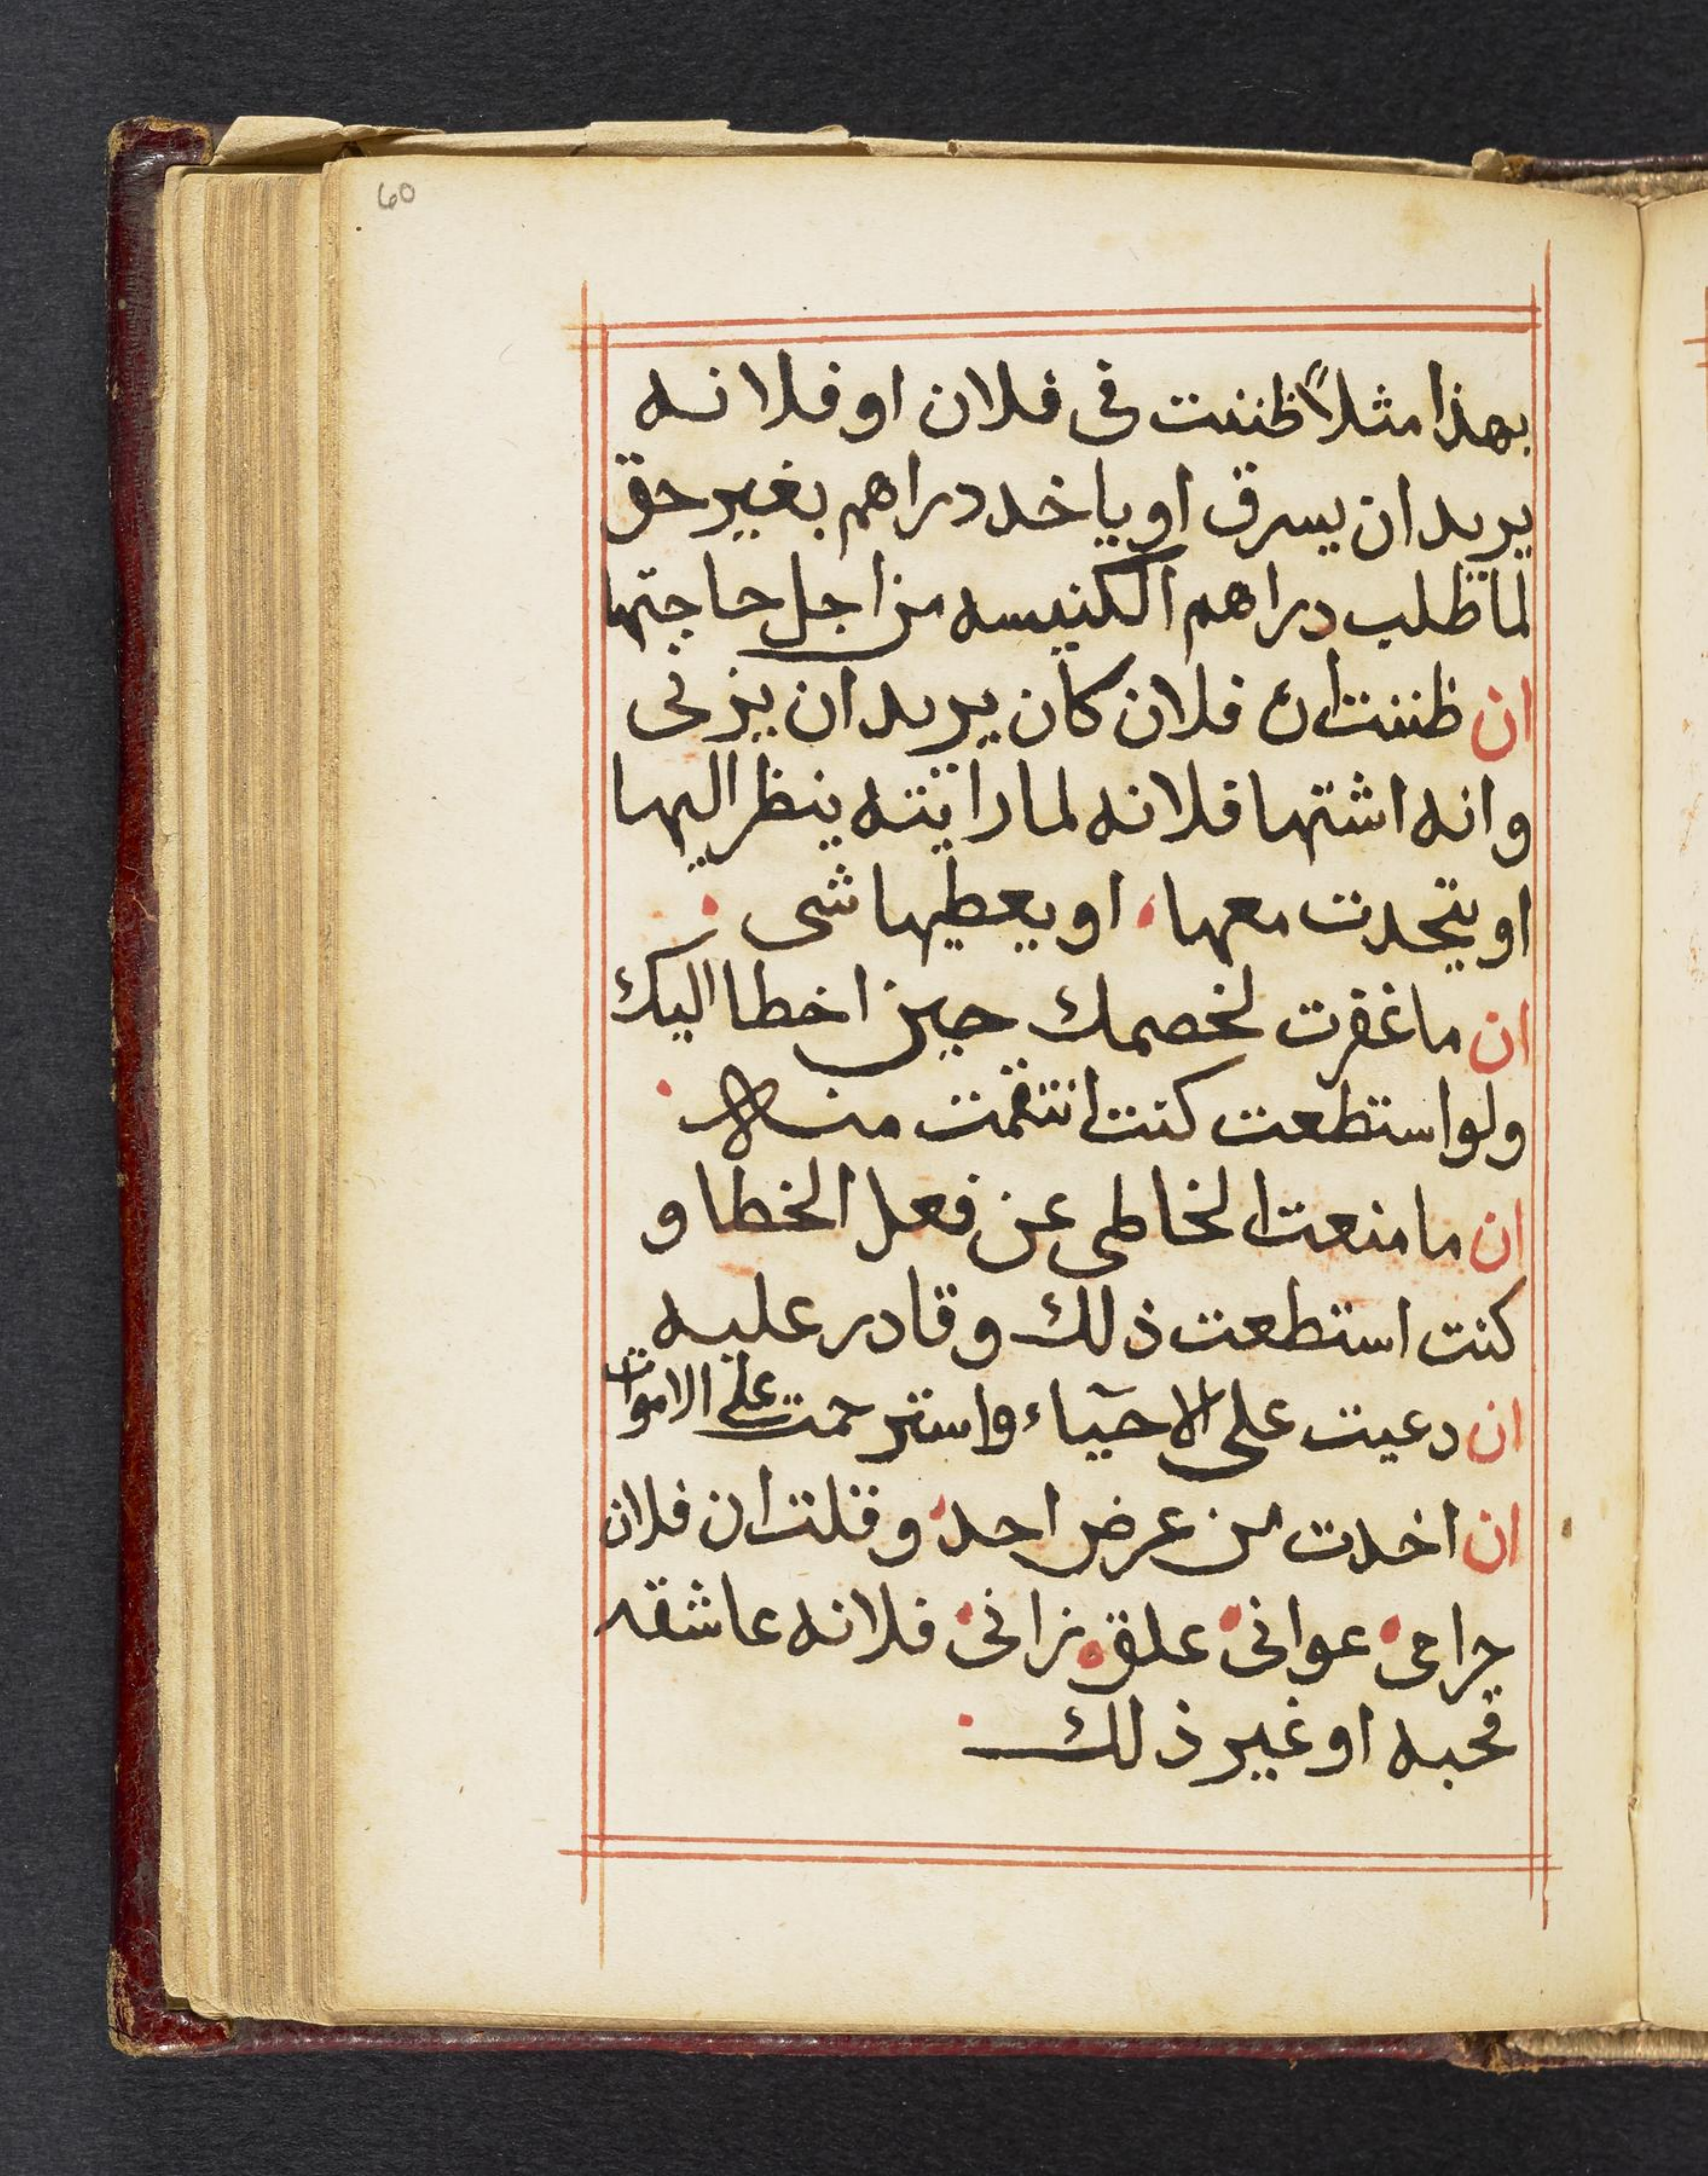 60
بهذا مثلاً ظننت فى فلان او فلانه
يريد ان يسرق او ياخد دراهم بغير حق
لما طلب دراهم الكنيسه من اجل حاجتها
ان ظننت ان فلان كان يريد ان يزنى
وانه اشتها فلانه لما رايته ينظر اليها
او يتحدت معها، او يعطيها شى.
ان ما غفرت لخصمك حين اخطا اليك
ولو استطعت كنت انتقمت منه.
ان ما منعت الخاطى عن فعل الخطا و
كنت استطعت ذلك وقادر عليه
ان دعيت على الاحيآء واسترحمت على الاموات
ان اخدت من عرض احد، وقلت ان فلان
حرامى، عوانى، علق، زانى، فلانه عاشقه
قحبه او غير ذلك.